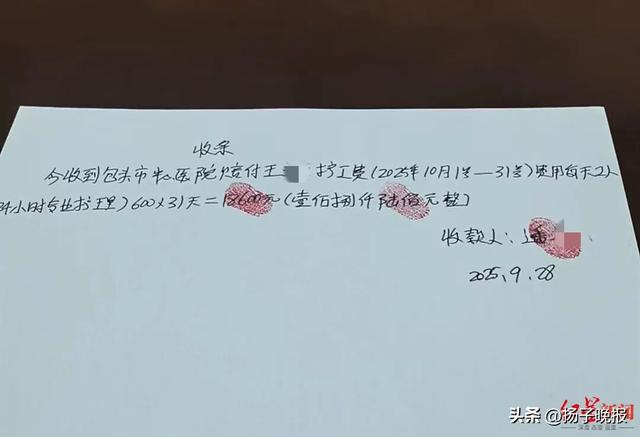 收条
今收到包头市中心医院赔付王 护工费(2025年10月1号—31号)费用每天2人
24小时专业护理)600×31天=18600元(壹佰捌仟陆佰元整)
收款人:
2025.9.28
红星新闻
深度 态度 温度
头条 @扬子晚报